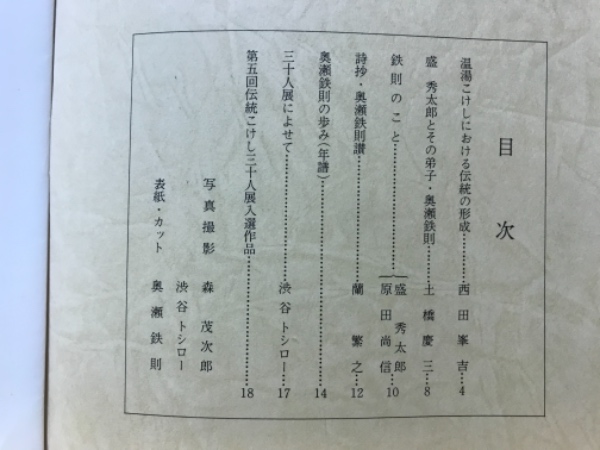 目次
温湯こけしにおける伝統の形成…………西田峯吉…4
盛秀太郎とその弟子・奥瀬鉄則…………土橋慶三…8
鉄則のこと…………{盛秀太郎
原田尚信…10
詩抄・奥瀬鉄則讃…………蘭繁之…12
奥瀬鉄則の歩み(年譜)…………14
三十人展によせて…………渋谷トシロー…17
第五回伝統こけし三十人展入選作品…………18
写真撮影 森茂次郎
渋谷トシロー
表紙・カット 奥瀬鉄則